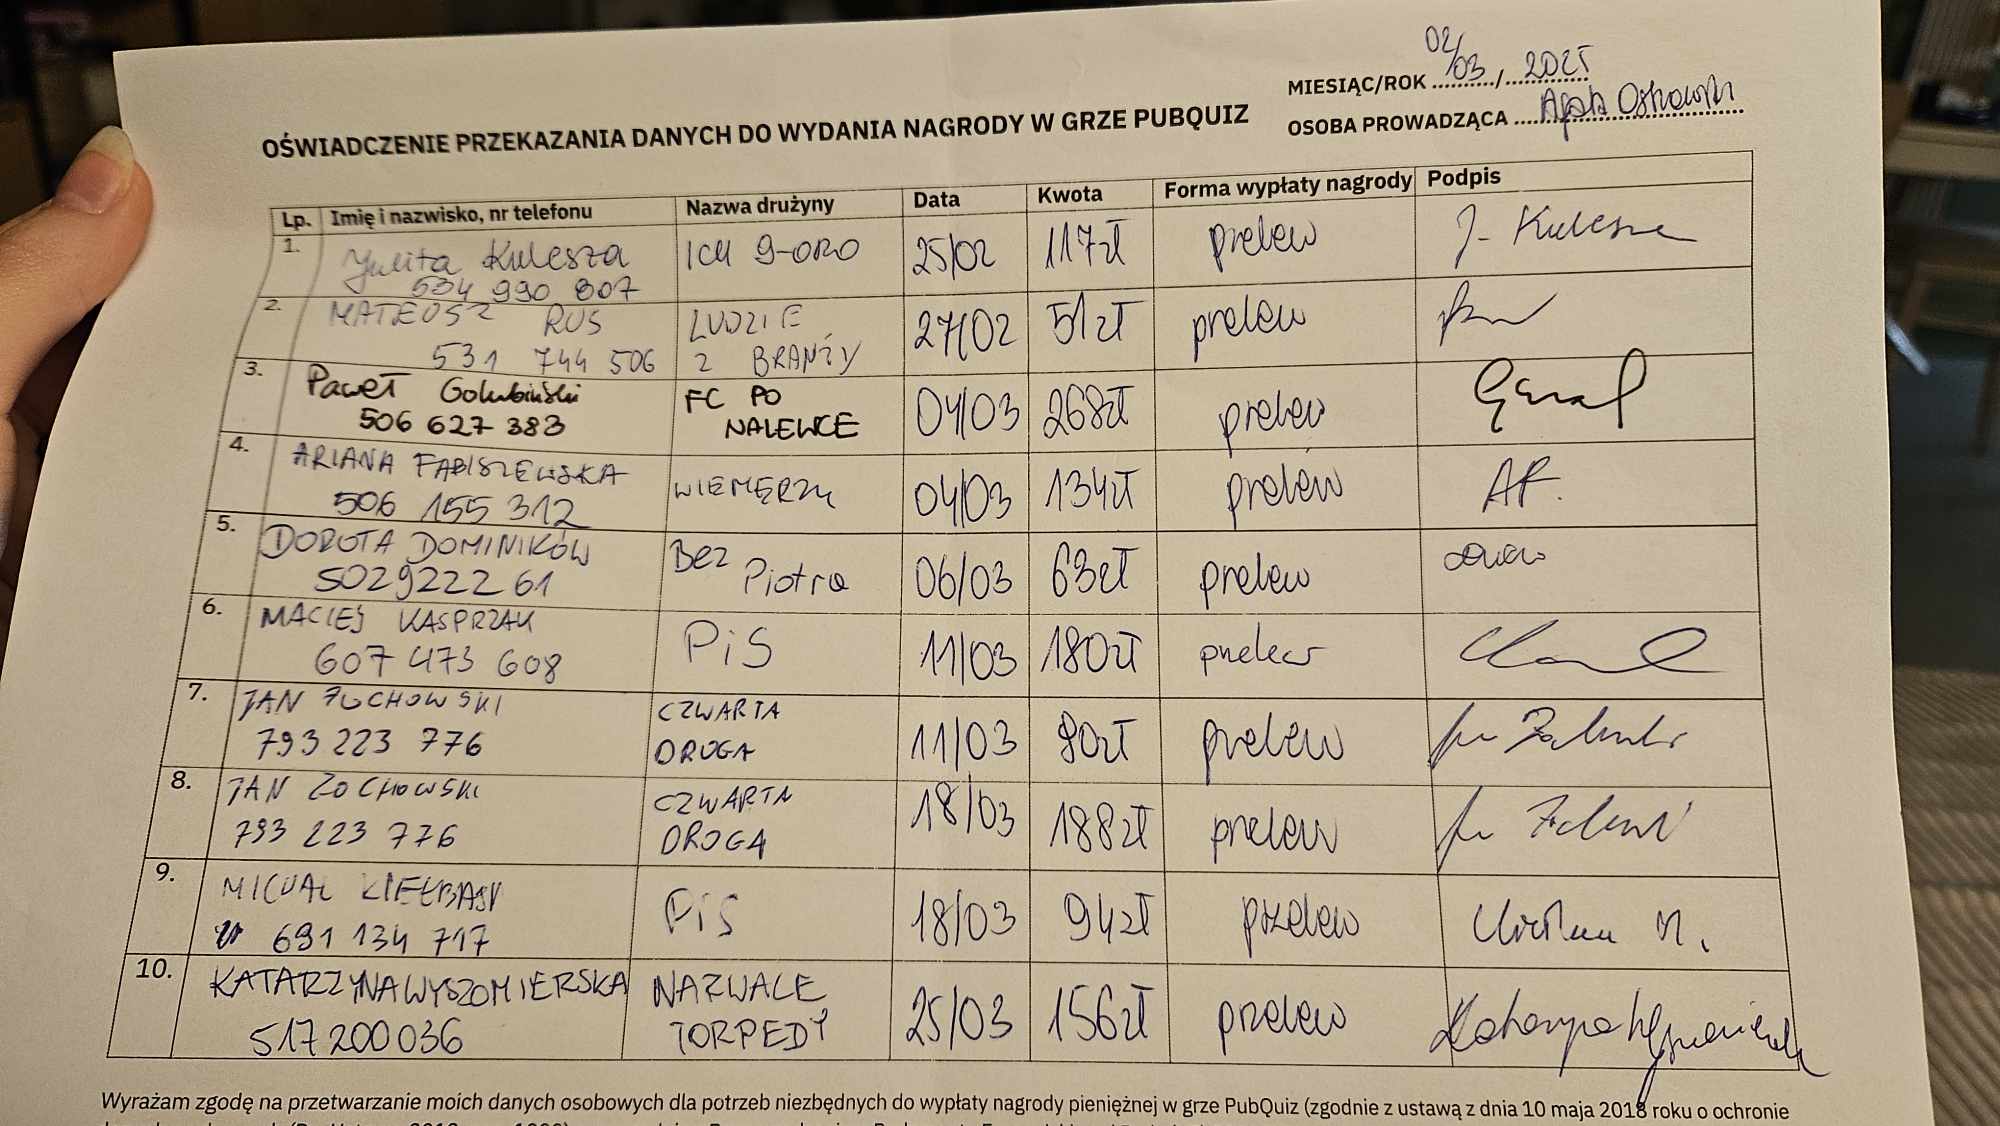 02/03
MIESIĄC/ROK ........../.......... 2025
OSOBA PROWADZĄCA .... Agata Ostrowska
OŚWIADCZENIE PRZEKAZANIA DANYCH DO WYDANIA NAGRODY W GRZE PUBQUIZ
Lp. Imię i nazwisko, nr telefonu Nazwa drużyny Data Kwota Forma wypłaty nagrody Podpis
1. Julita Kulesza ICH 9-ORO 25/02 117zł przelew J. Kulesza
534 990 807
2. MATEUSZ RUS LUDZIE 27/02 51zł przelew
531 744 506 Z BRANŻY
3. Paweł Gołubiński FC PO 04/03 268zł przelew
506 627 383 NALEWCE
4. ARIANA FABISZEWSKA WIEMĘRZY 04/03 134zł przelew AF.
506 155 312
5. DOROTA DOMINIKÓW Bez 06/03 63zł przelew
502922261 Piotra
6. MACIEJ KASPRZAK PiS 11/03 180zł przelew
607 473 608
7. JAN ŻOCHOWSKI CZWARTA 11/03 80zł przelew
793 223 776 DROGA
8. JAN ŻOCHOWSKI CZWARTA 18/03 188zł przelew
793 223 776 DROGA
9. MICHAŁ KIEŁBASA PiS 18/03 94zł przelew
691 134 717
10. KATARZYNA WYSZOMIERSKA NAZWALE 25/03 156zł przelew Katarzyna Wyszomierska
517200036 TORPEDY
Wyrażam zgodę na przetwarzanie moich danych osobowych dla potrzeb niezbędnych do wypłaty nagrody pieniężnej w grze PubQuiz (zgodnie z ustawą z dnia 10 maja 2018 roku o ochronie